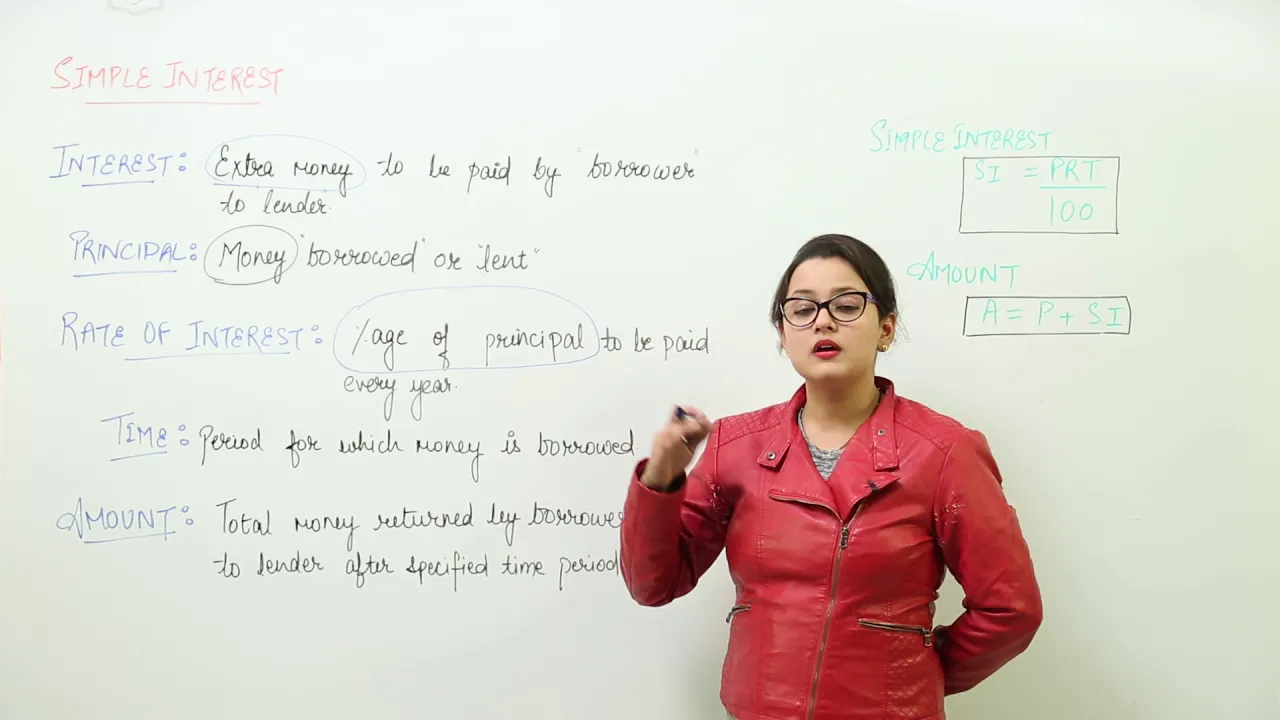 SIMPLE INTEREST
INTEREST: Extra money to be paid by "borrower"
to lender.
PRINCIPAL: Money "borrowed" or "lent"
RATE OF INTEREST: %age of principal to be paid
every year.
TIME: Period for which money is borrowed.
AMOUNT: Total money returned by borrower
to lender after specified time period
SIMPLE INTEREST
SI = PRT
100
AMOUNT
A = P + SI